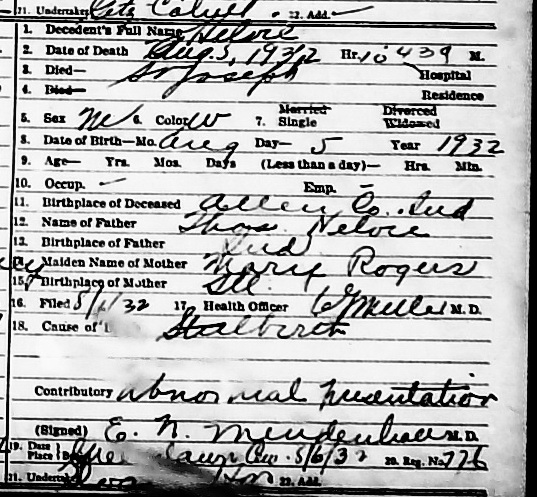 21. Undertaker Colvell. 22. Add.
1. Decedent's Full Name Nelore
2. Date of Death Aug. 5, 1932 Hr. 10 439 M.
3. Died— St Joseph Hospital
4. Died— Residence
5. Sex M 6. Color W 7. Married Single Divorced Widowed
8. Date of Birth—Mo. Aug Day— 5 Year 1932
9. Age— Yrs. Mos. Days (Less than a day)— Hrs. Min.
10. Occup. — Emp. —
11. Birthplace of Deceased Allen Co. Ind
12. Name of Father Thos. Nelore
13. Birthplace of Father Ind
14. Maiden Name of Mother Mary Rogers
15. Birthplace of Mother Ill
16. Filed 8/ /32 17. Health Officer Miller M.D.
18. Cause of Stalbirth
Contributory abnormal presentation
(Signed) E. N. Mendenhall M.D.
19. Date Place 8/6/32 20. Reg. No. 776
21. Undertaker 22. Add.